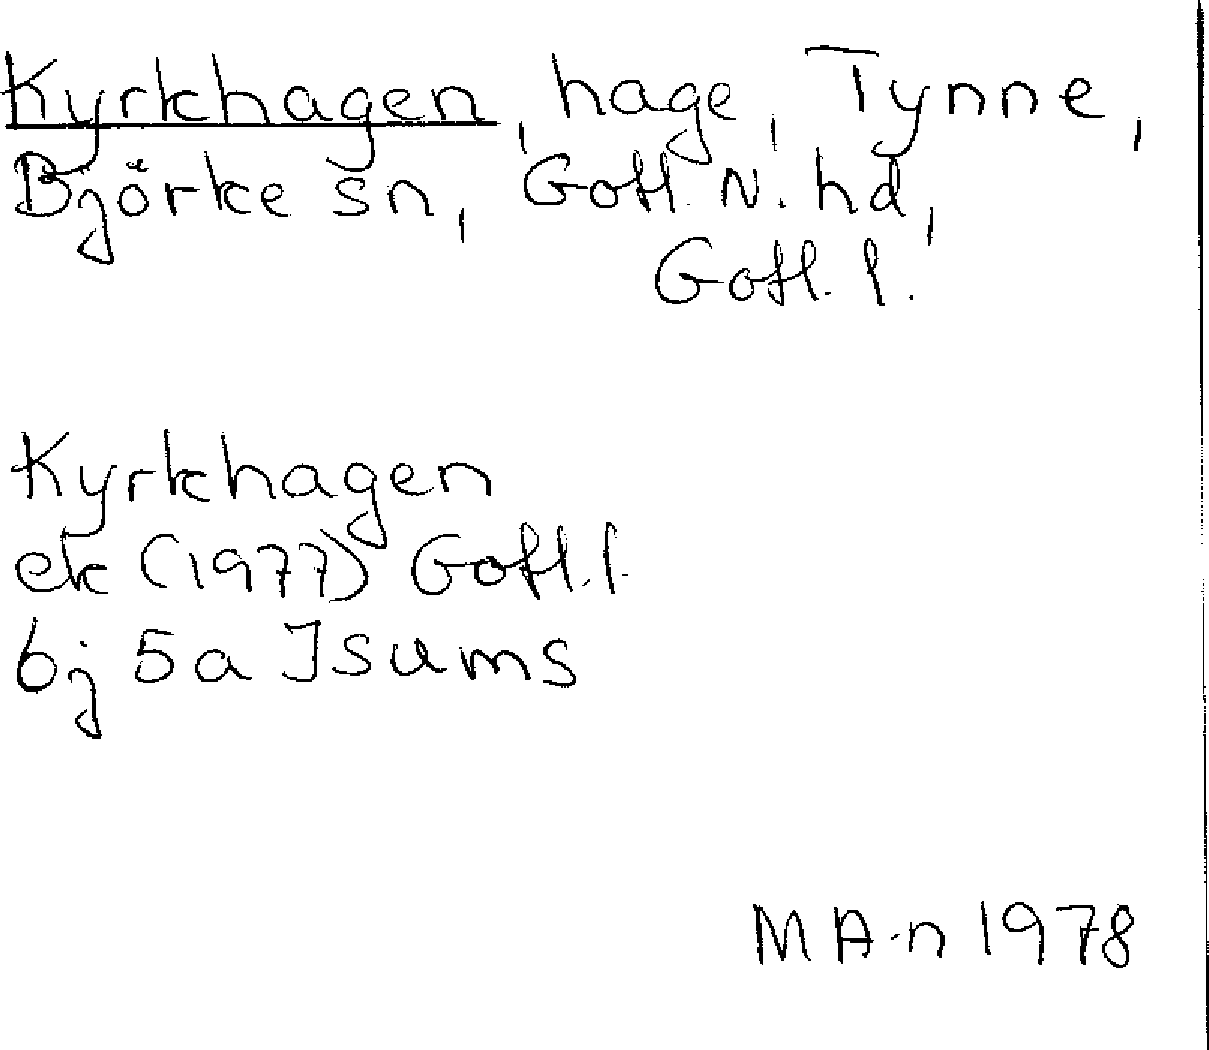 Kyrkhagen, hage, Tynne,
Björke sn, Gotl. N. hd,
Gotl. l.
Kyrkhagen
ek (1977) Gotl. l.
6j 5a Isums
MA-n 1978